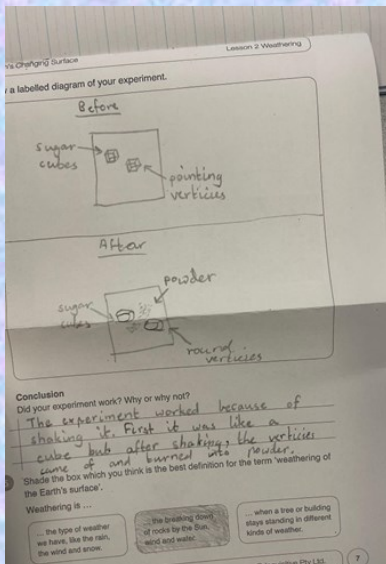 Changing Surface
Lesson 2 Weathering
a labelled diagram of your experiment.
Before
sugar
cubes
pointing
verticies
After
powder
sugar
cubes
round
verticies
Conclusion
Did your experiment work? Why or why not?
The experiment worked because of
shaking it. First it was like a
cube but after shaking, the verticies
came of and burned into powder.
Shade the box which you think is the best definition for the term 'weathering of
the Earth's surface'.
Weathering is ...
... the type of weather
we have, like the rain,
the wind and snow.
... the breaking down
of rocks by the Sun,
wind and water.
... when a tree or building
stays standing in different
kinds of weather.
Pty Ltd.
7